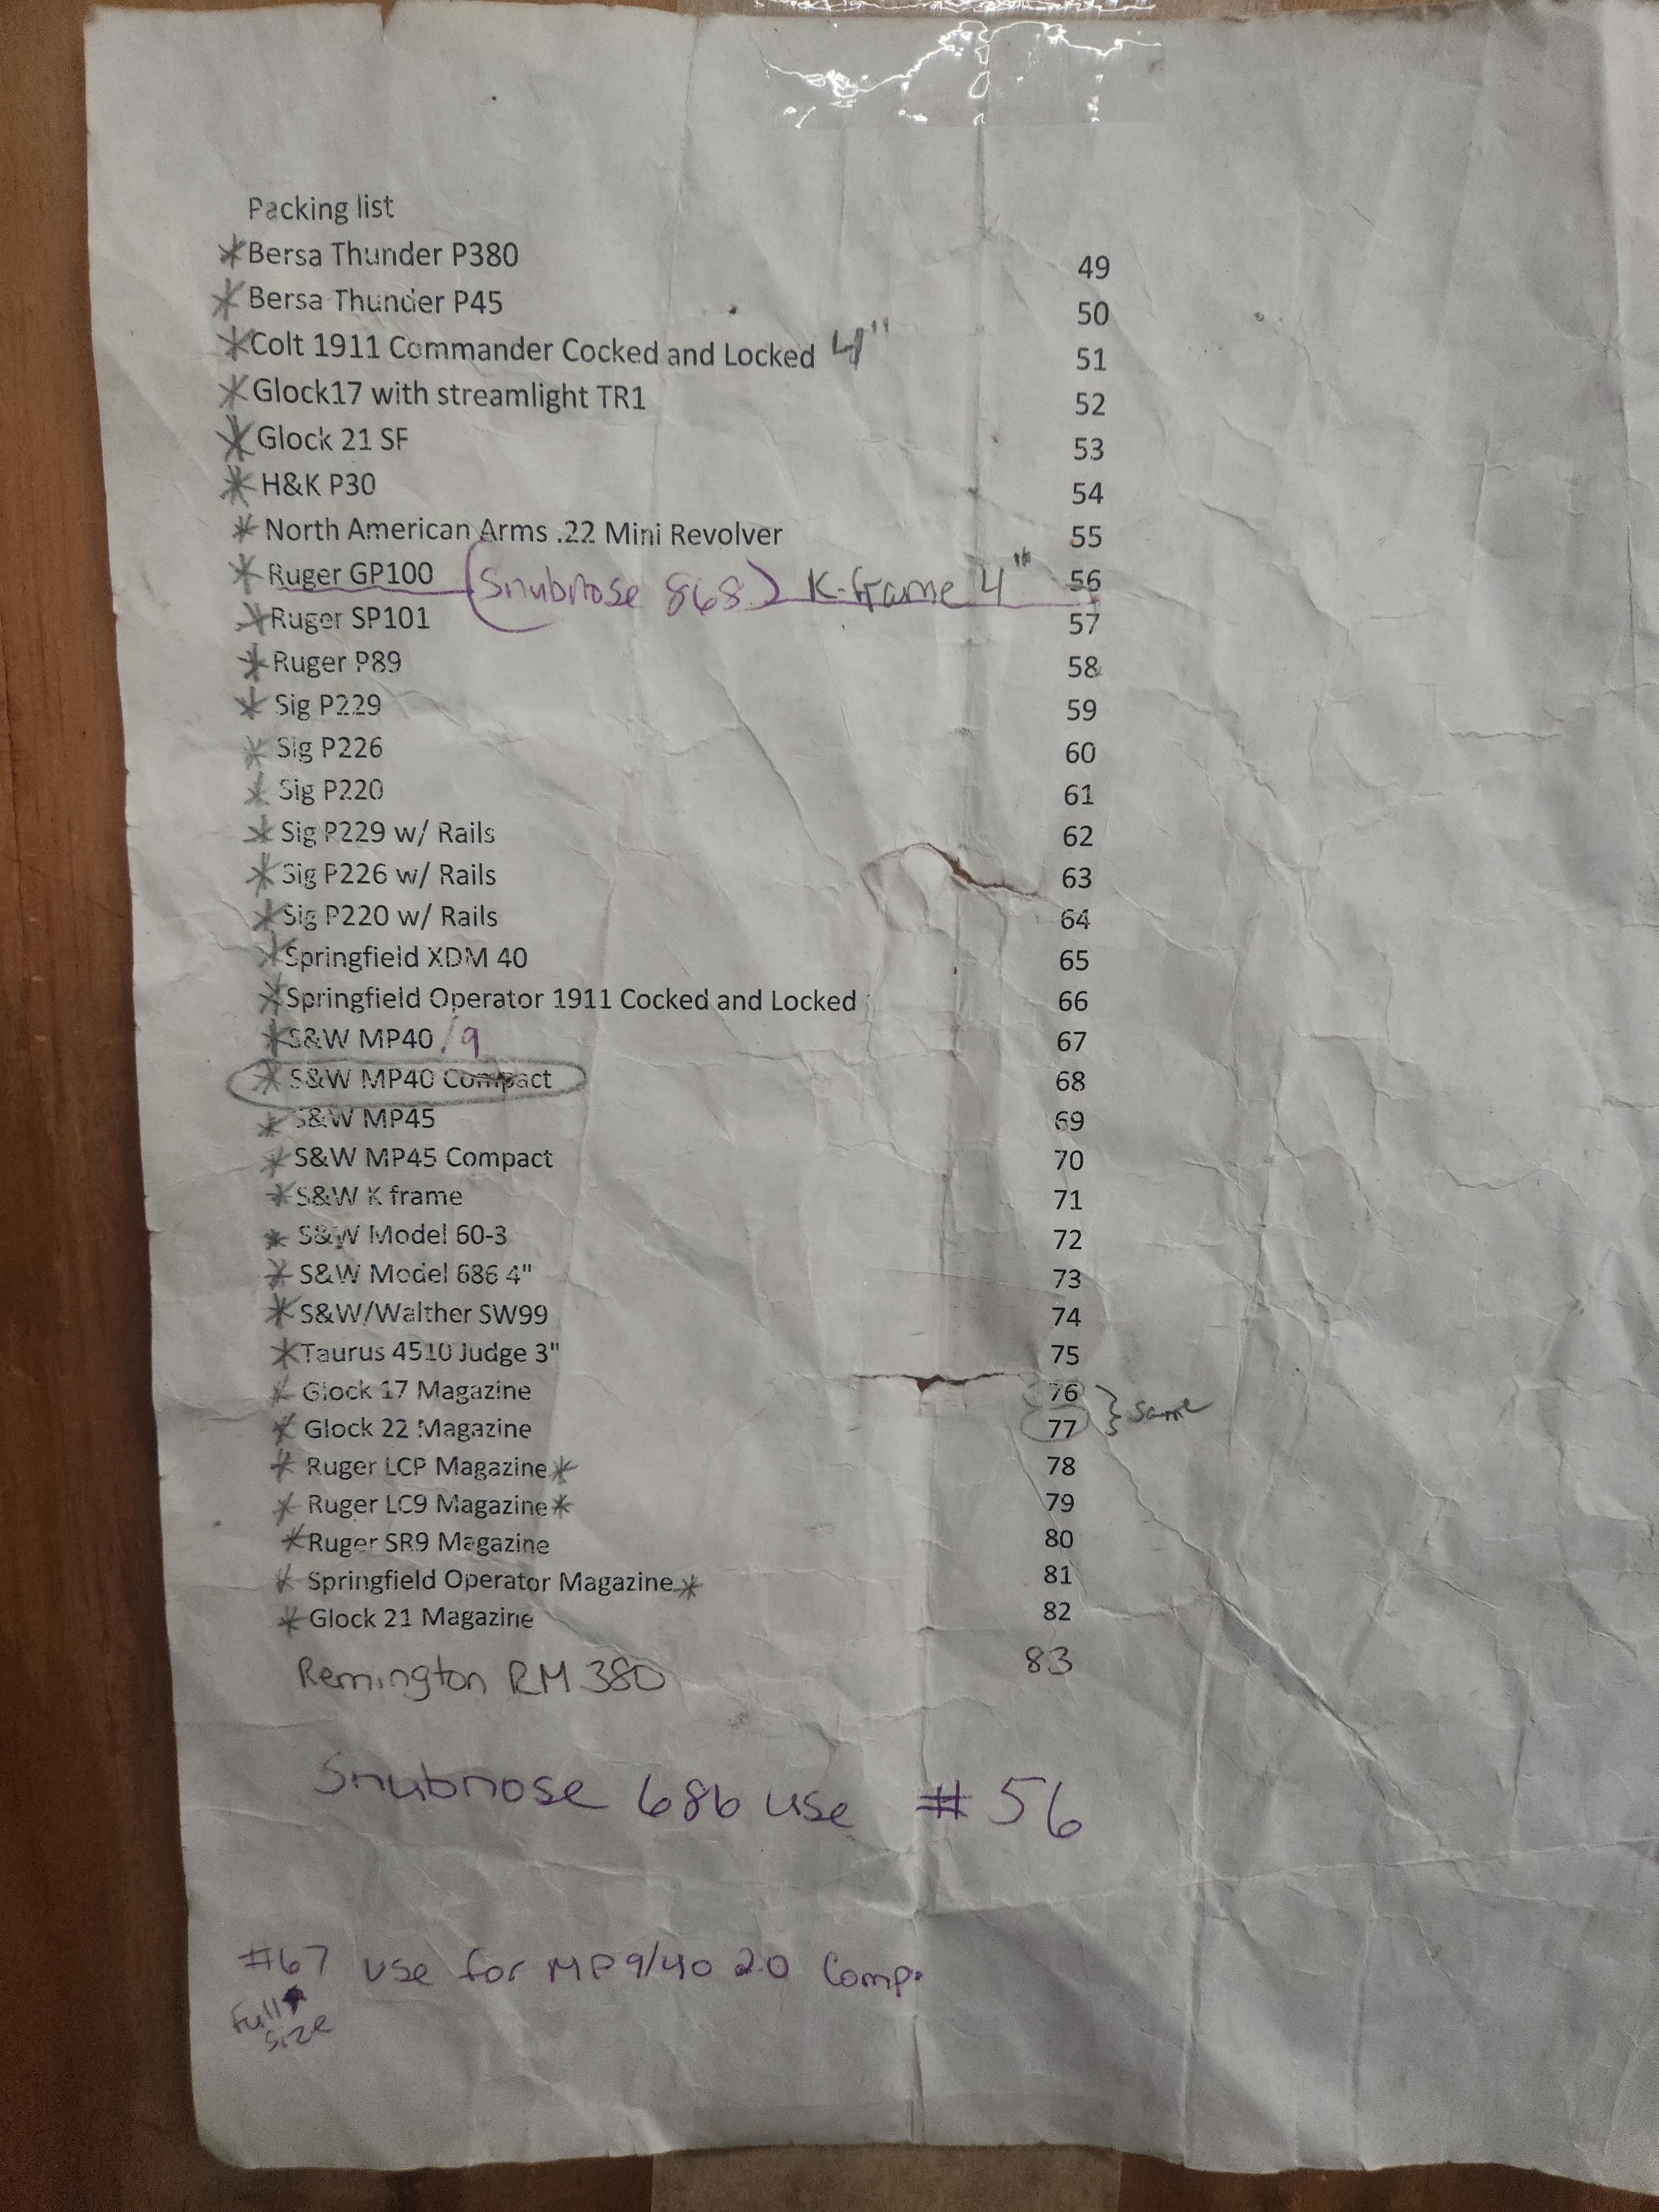 Packing list
*Bersa Thunder P380 49
*Bersa Thunder P45 50
*Colt 1911 Commander Cocked and Locked 4" 51
*Glock17 with streamlight TR1 52
*Glock 21 SF 53
*H&K P30 54
*North American Arms .22 Mini Revolver 55
*Ruger GP100 (Snubnose 868) K-frame 4" 56
*Ruger SP101 57
*Ruger P89 58
*Sig P229 59
*Sig P226 60
*Sig P220 61
*Sig P229 w/ Rails 62
*Sig P226 w/ Rails 63
*Sig P220 w/ Rails 64
*Springfield XDM 40 65
*Springfield Operator 1911 Cocked and Locked 66
*S&W MP40/9 67
*S&W MP40 Compact 68
*S&W MP45 69
*S&W MP45 Compact 70
*S&W K frame 71
*S&W Model 60-3 72
*S&W Model 686 4" 73
*S&W/Walther SW99 74
*Taurus 4510 Judge 3" 75
*Glock 17 Magazine 76 } same
*Glock 22 Magazine 77
*Ruger LCP Magazine* 78
*Ruger LC9 Magazine* 79
*Ruger SR9 Magazine 80
*Springfield Operator Magazine* 81
*Glock 21 Magazine 82
Remington RM 380 83
Snubnose 686 use #56
#67 use for MP9/40 2.0 Comp.
Full size